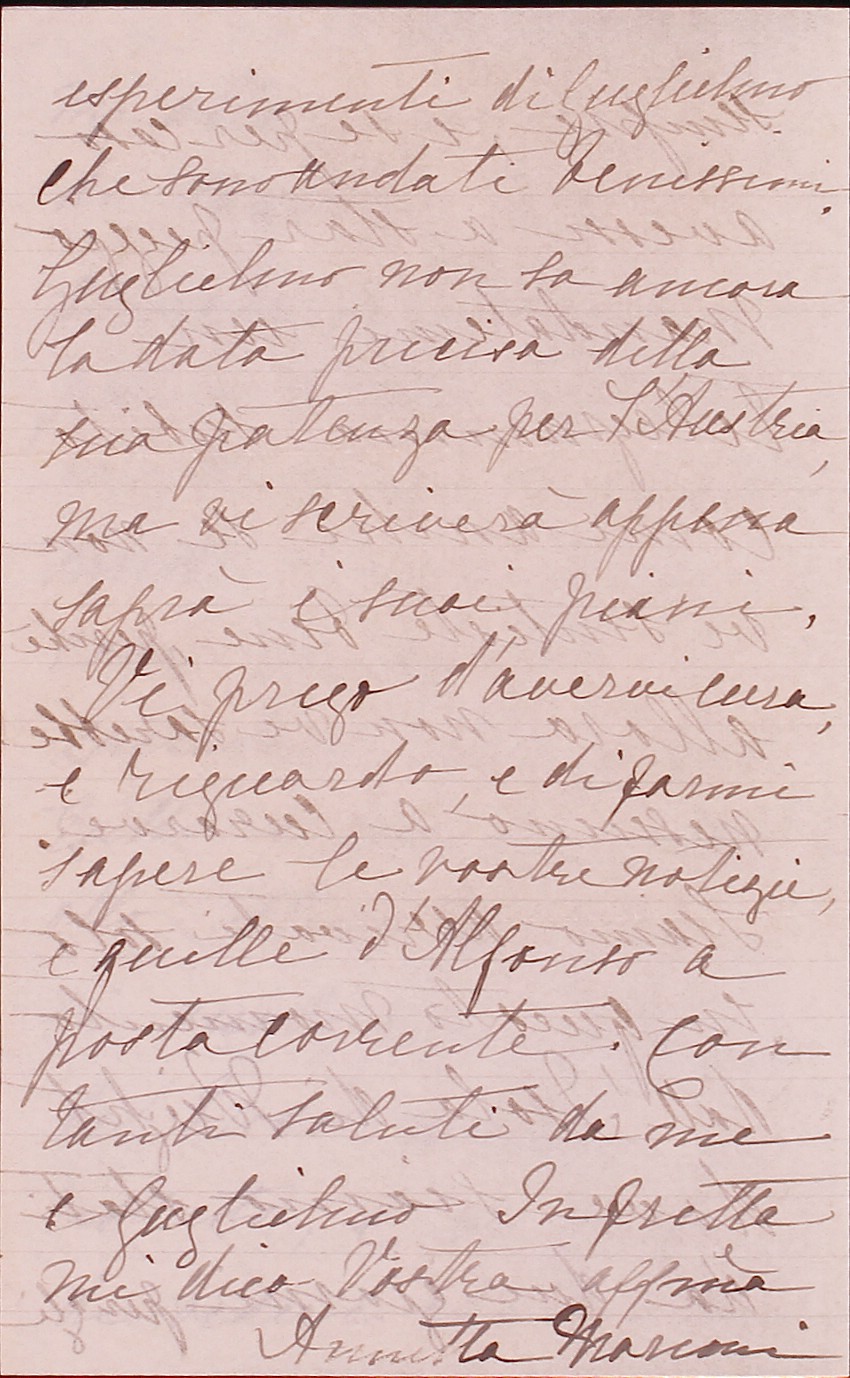 esperimenti di Guglielmo
che sono andati benissimi.
Guglielmo non sa ancora
la data precisa della
sua patenza per l'Austria,
ma vi scriverà appena
saprà i suoi piani.
Vi prego d'avervi cura,
e riguardo, e di farmi
sapere le vostre notizie,
e quelle d'Alfonso a
posta corrente. Con
tanti saluti da me
e Guglielmo In fretta
mi dico Vostra affma
Annetta Marconi